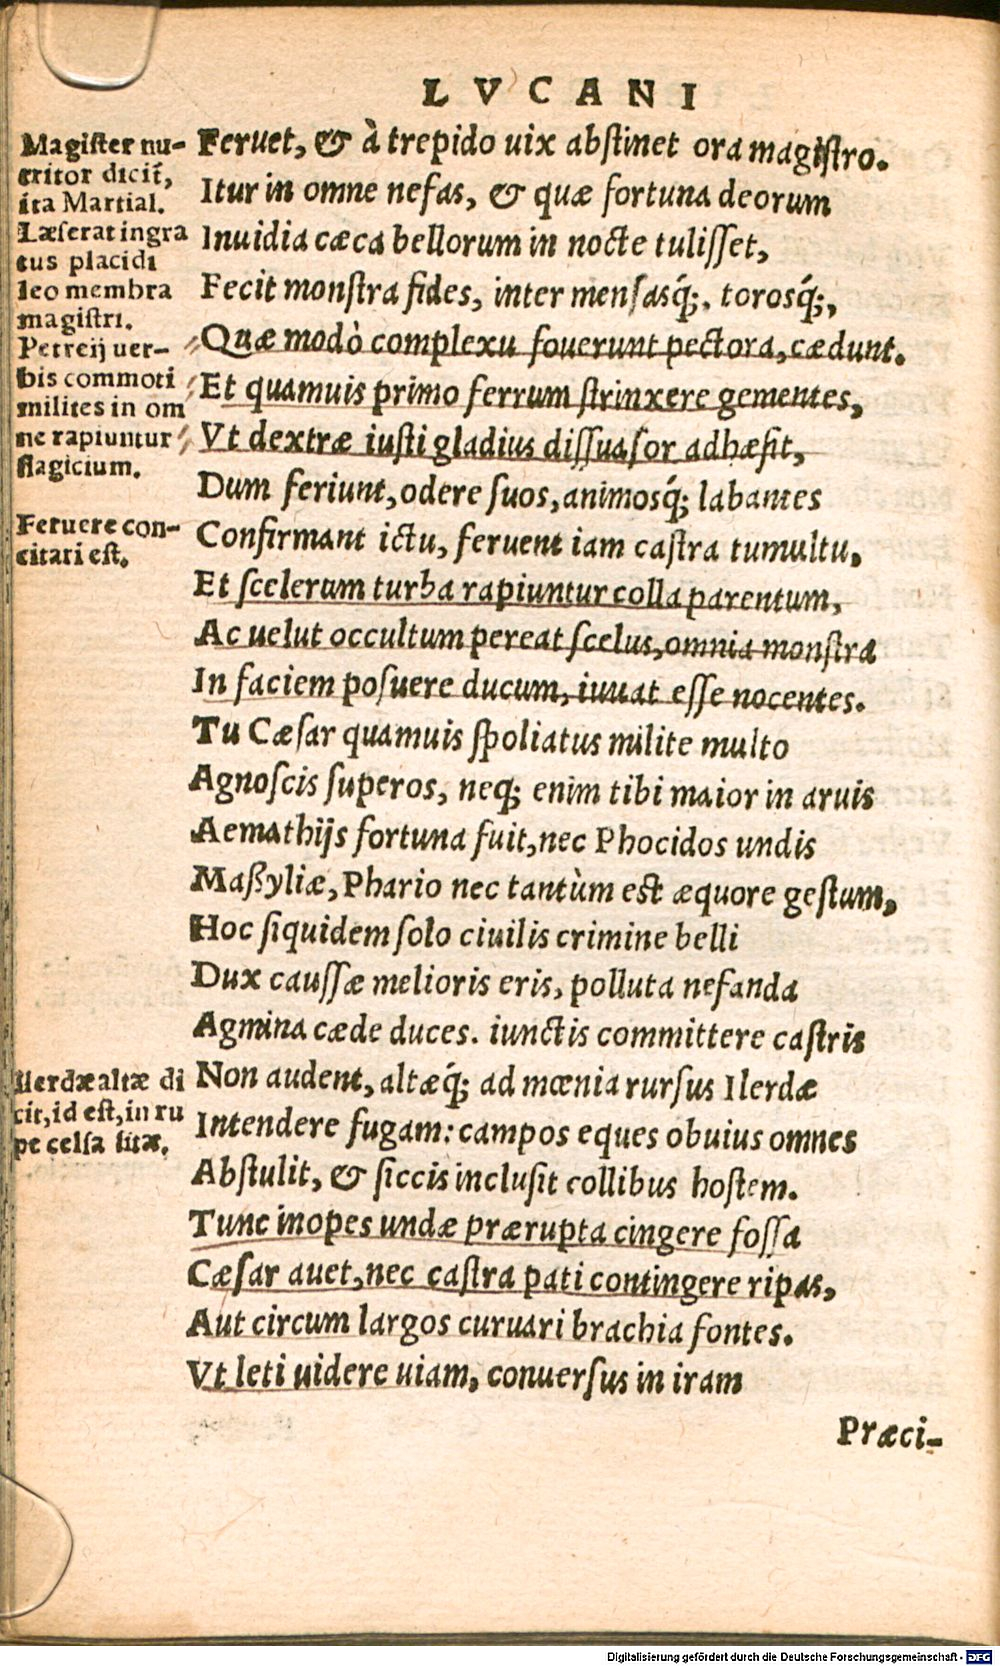 LVCANI
Magister nu-
tritor dicit̃,
ita Martial.
Læserat ingra
tus placidi
leo membra
magistri.
Petreij uer-
bis commoti
milites in om
ne rapiuntur
flagicium.
Feruere con-
citari est.
Ilerdæ altæ di
cit, id est, in ru
pe celsa sitæ.
Feruet, & à trepido uix abstinet ora magistro.
Itur in omne nefas, & quæ fortuna deorum
Inuidia cæca bellorum in nocte tulisset,
Fecit monstra fides, inter mensasq́;, torosq́;,
Quæ modò complexu fouerunt pectora, cædunt.
Et quamuis primo ferrum strinxere gementes,
Vt dextræ iusti gladius dissuasor adhæsit,
Dum feriunt, odere suos, animosq́; labantes
Confirmant ictu, feruent iam castra tumultu,
Et scelerum turba rapiuntur colla parentum,
Ac uelut occultum pereat scelus, omnia monstra
In faciem posuere ducum, iuuat esse nocentes.
Tu Cæsar quamuis spoliatus milite multo
Agnoscis superos, neq; enim tibi maior in aruis
Aemathijs fortuna fuit, nec Phocidos undis
Maßyliæ, Phario nec tantùm est æquore gestum,
Hoc siquidem solo ciuilis crimine belli
Dux caussæ melioris eris, polluta nefanda
Agmina cæde duces. iunctis committere castris
Non audent, altæq́; ad mœnia rursus Ilerdæ
Intendere fugam: campos eques obuius omnes
Abstulit, & siccis inclusit collibus hostem.
Tunc inopes undæ prærupta cingere fossa
Cæsar auet, nec castra pati contingere ripas,
Aut circum largos curuari brachia fontes.
Vt leti uidere uiam, conuersus in iram
Præci-
Digitalisierung gefördert durch die Deutsche Forschungsgemeinschaft - DFG